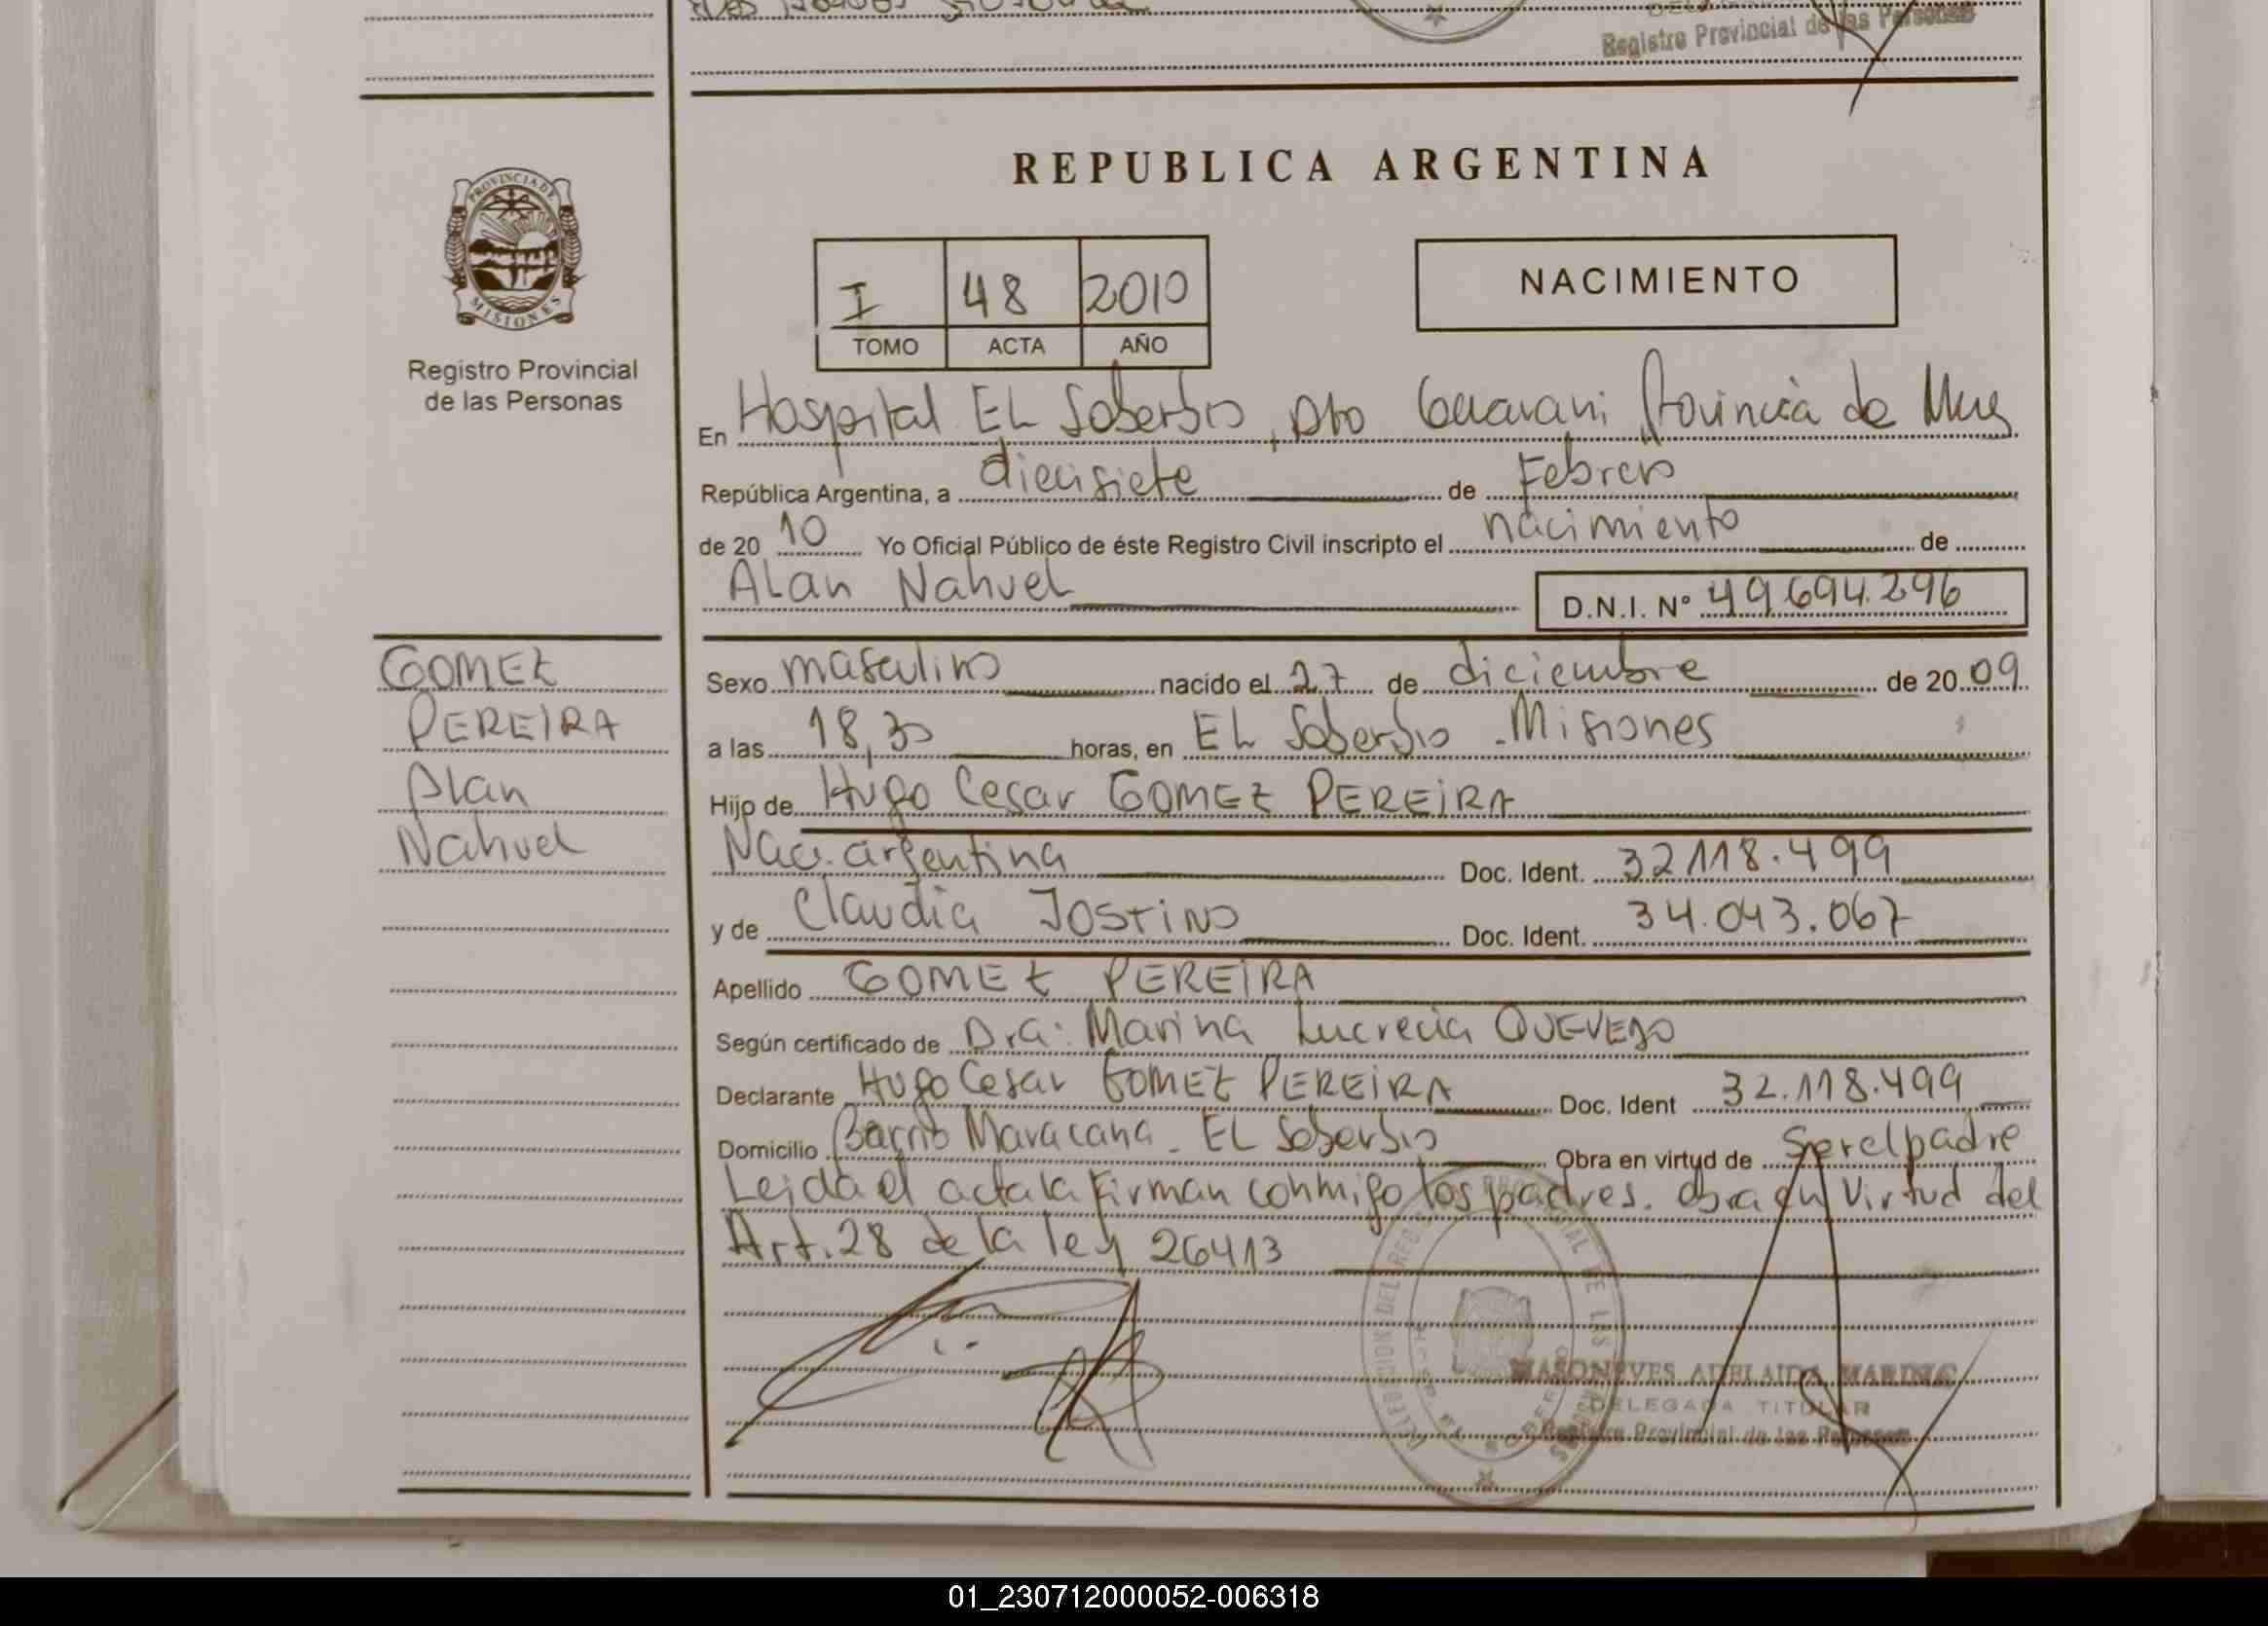 Registro Provincial de las Personas
REPUBLICA ARGENTINA
PROVINCIA DE
MISIONES
Registro Provincial
de las Personas
I 48 2010
TOMO ACTA AÑO
NACIMIENTO
En Hospital EL Soberbio, Dto Guarani Provincia de Mnes
República Argentina, a diecisiete de Febrero
de 20 10 Yo Oficial Público de éste Registro Civil inscripto el nacimiento de
Alan Nahuel D.N.I. Nº 49.694.296
GOMEZ
PEREIRA
Alan
Nahuel
Sexo masculino nacido el 27 de diciembre de 20 09
a las 18,30 horas, en EL Soberbio - Misiones
Hijo de Hugo Cesar GOMEZ PEREIRA
Nac. argentina Doc. Ident. 32.118.499
y de Claudia JOSTINO Doc. Ident. 34.043.067
Apellido GOMEZ PEREIRA
Según certificado de Dra: Marina Lucrecia QUEVEDO
Declarante Hugo Cesar GOMEZ PEREIRA Doc. Ident 32.118.499
Domicilio Barrio Maracana - EL Soberbio Obra en virtud de Ser el padre
Leida el acta la firman conmigo los padres. Obra en Virtud del
Art. 28 de la ley 26413
MASONEVES ADELAIDA MARINA
DELEGADA TITULAR
Registro Provincial de las Personas
01_230712000052-006318